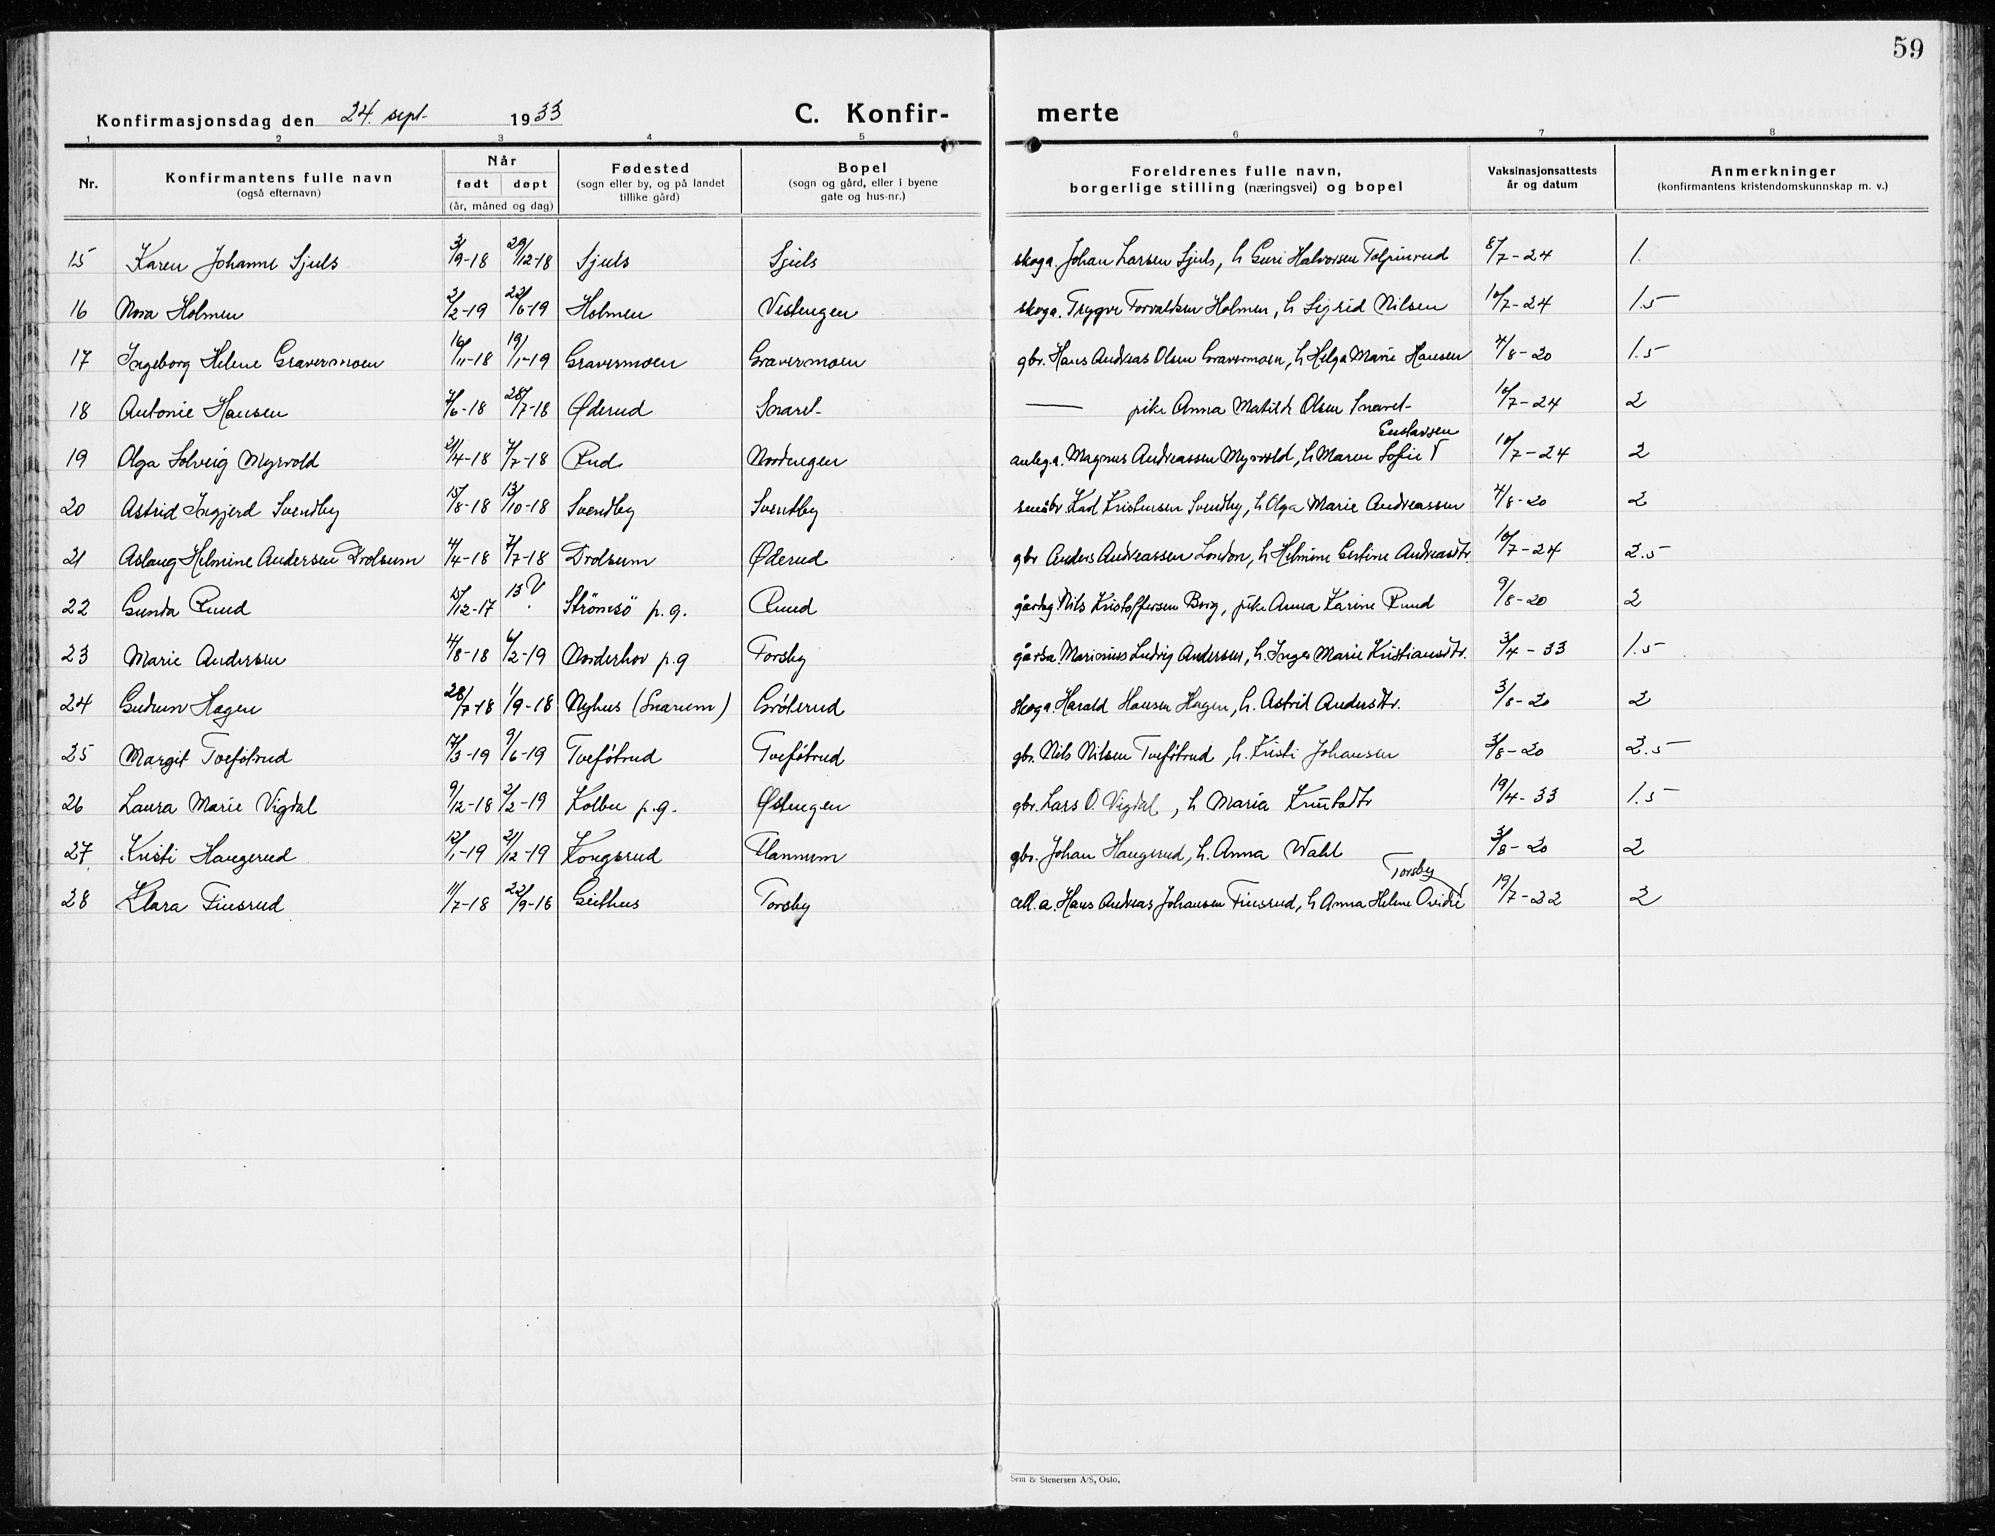 59
Konfirmasjonsdag den 24. sept. 1933 C. Konfir- merte
1 2 3 4 5 6 7 8
Nr. Konfirmantens fulle navn (også efternavn) Når født døpt (år, måned og dag) Fødested (sogn eller by, og på landet tillike gård) Bopel (sogn og gård, eller i byene gate og hus-nr.) Foreldrenes fulle navn, borgerlige stilling (næringsvei) og bopel Vaksinasjonsattests år og datum Anmerkninger (konfirmantens kristendomskunnskap m. v.)
15 Karen Johanne Sjuls 3/9-18 29/12-18 Sjuls Sjuls skoga. Johan Larsen Sjuls, h Guri Halvorsen Tolpinrud 8/7-24 1.
16 Nora Holmen 3/2-19 22/6-19 Holmen Vestengen skoga. Trygve Torvaldsen Holmen, h Sigrid Nilsen 10/7-24 1.5
17 Ingeborg Helene Gravermoen 16/11-18 19/1-19 Gravermoen Gravermoen gbr. Hans Andreas Olsen Gravermoen, h Helga Marie Hansen 4/8-20 1.5
18 Antonie Hansen 7/6-18 28/7-18 Øderud Snaret- — pike Anna Matilde Olsen Snaret- 10/7-24 2
19 Olga Solveig Myrvold 21/4-18 7/7-18 Rud Nordengen anleg.a. Magnus Andreassen Myrvold, h Maren Sofie Gustavsen 10/7-24 2
20 Astrid Ingjerd Svendby 15/8-18 13/10-18 Svendby Svendby småbr. Karl Kristensen Svendby, h Olga Marie Andreassen 4/8-20 2
21 Aslaug Helmine Andersen Drolsum 4/4-18 7/7-18 Drolsum Øderud gbr Anders Andreassen London, h Helmine Andreasdtr. 10/7-24 2.5
22 Gunda Ruud 15/12-17 13 V. Strömsö p.g. Ruud gårdsg Nils Kristoffersen Borg, pike Anna Karine Ruud 9/8-20 2
23 Marie Andersen 4/8-18 6/2-19 Norderhov p.g Torsby gårdsa. Marinius Ludvig Andersen, h. Inger Marie Kristiansdtr. 3/4-33 1.5
24 Gudrun Hagen 28/7-18 1/9-18 Nyhus (Snarum) Gröterud skoga. Harald Hansen Hagen, h. Astrid Andersdtr. 3/8-20 2
25 Margit Tvefötrud 17/3-19 9/6-19 Tvefötrud Tvefötrud gbr. Nils Nilsen Tvefötrud, h. Kristi Johansen 3/8-20 2.5
26 Laura Marie Vigdal 9/12-18 2/2-19 Kolbu p.g. Østengen gbr. Lars O. Vigdal, h Maria 19/4-33 1.5
27. Kristi Haugerud 12/1-19 21/12-19 Kongsrud Flannum gbr. Johan Haugerud, h. Anna Wahl 3/8-20 2
28 Klara Finsrud 11/7-18 22/9-18 Geithus Torsby cell.a. Hans Andreas Johansen Finsrud, h Anna Helene Torsby 19/7-22 2
Sem & Stenersen A/S, Oslo.